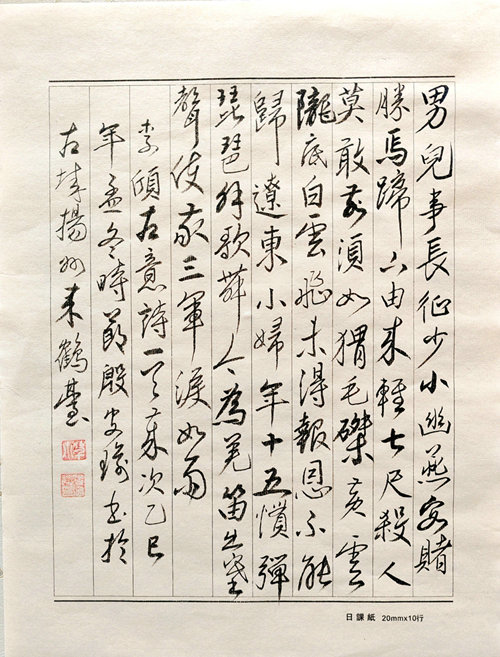 男兒事長征少小幽燕客賭
勝馬蹄下由來輕七尺殺人
莫敢前須如猬毛磔黃雲
隴底白雲飛未得報恩不能
歸遼東小婦年十五慣彈
琵琶解歌舞今為羌笛出塞
聲使我三軍淚如雨
李頎古意詩一首歲次乙巳
年孟冬時節殷書於
古城揚州來鶴臺
日課紙 20mmx10行